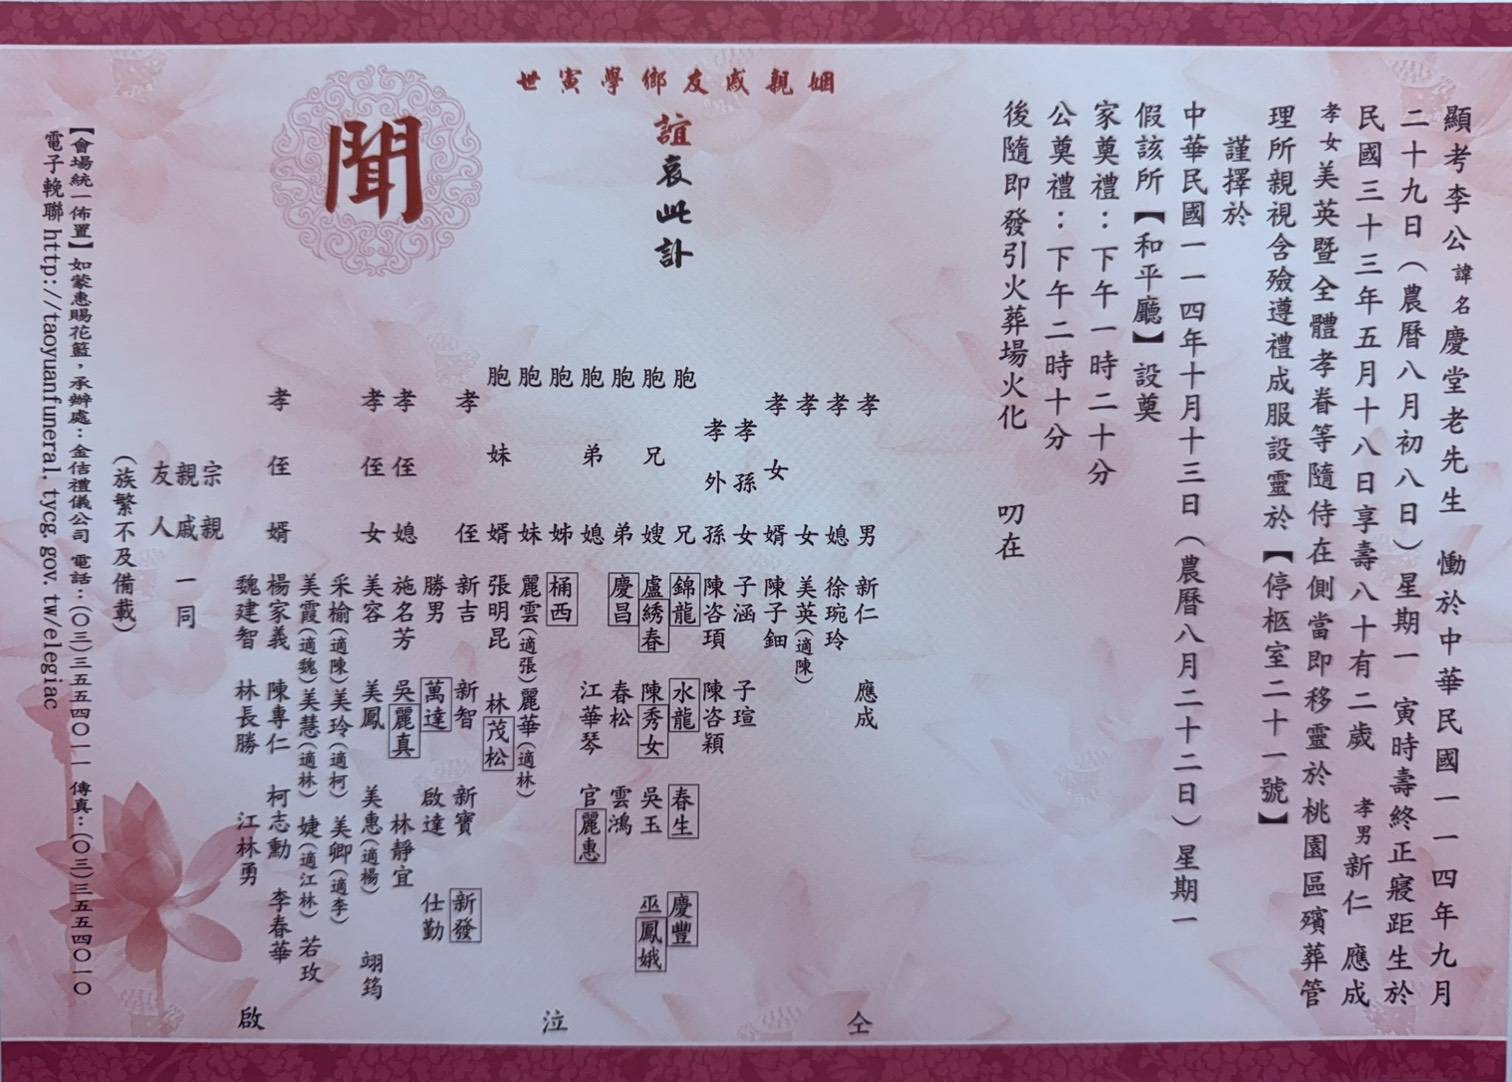 顯考李公諱名慶堂老先生　慟於中華民國一一四年九月
二十九日（農曆八月初八日）星期一　寅時壽終正寢距生於
民國三十三年五月十八日享壽八十有二歲　孝男新仁　應成
孝女美英暨全體孝眷等隨侍在側當即移靈於桃園區殯葬管
理所親視含殮遵禮成服設靈於【停柩室二十一號】
謹擇於
中華民國一一四年十月十三日（農曆八月二十二日）星期一
假該所【和平廳】設奠
家奠禮：下午一時二十分
公奠禮：下午二時十分
後隨即發引火葬場火化　叨在
姻親戚友鄉學寅世
誼哀此訃
聞
孝男　新仁　應成
孝媳　徐琬玲
孝女　美英（適陳）
孝女婿　陳子鈿
孝孫女　子涵　子瑄
孝外孫　陳咨頊　陳咨穎
胞兄　錦龍　水龍　春生　慶豐
胞兄嫂　盧綉春　陳秀女　吳玉　巫鳳娥
胞弟　慶昌　春松　雲鴻
胞弟媳　江華琴　官麗惠
胞姊　桶西
胞妹　麗雲（適張）麗華（適林）
胞妹婿　張明昆　林茂松
孝侄　新吉　新智　新寶　新發
勝男　萬達　啟達　仕勤
孝侄媳　施名芳　吳麗真　林靜宜
孝侄女　美容　美鳳　美惠（適楊）　翊筠
采榆（適陳）美玲（適柯）　美卿（適李）
美霞（適魏）美慧（適林）　婕（適江林）　若玫
孝侄婿　楊家義　陳專仁　柯志勳　李春華
魏建智　林長勝　江林勇
仝　泣　啟
宗親
親戚　一同
友人
（族繁不及備載）
【會場統一佈置】如蒙惠賜花籃，承辦處：金佶禮儀公司　電話：（〇三）三五五四〇一一　傳真：（〇三）三五五四〇一〇
電子輓聯 http://taoyuanfuneral.tycg.gov.tw/elegiac